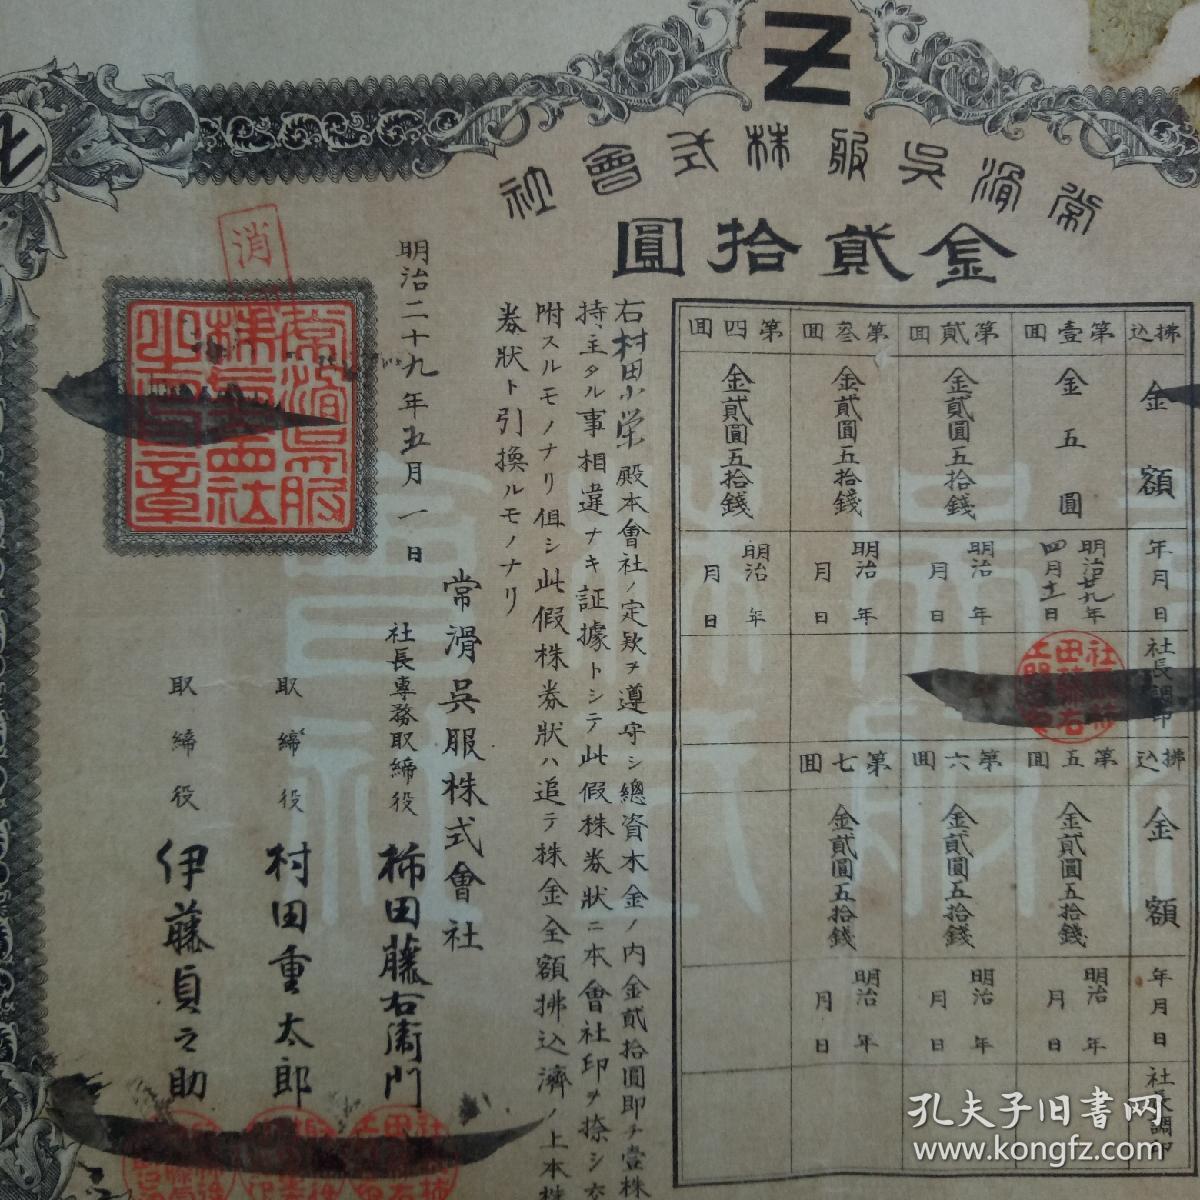 常滑呉服株式會社
金貳拾圓
拂込 第壹回 第貳回 第叁回 第四回
金額 金五圓 金貳圓五拾錢 金貳圓五拾錢 金貳圓五拾錢
年月日 明治廿九年四月十二日 明治 年 月 日 明治 年 月 日 明治 年 月 日
社長調印
拂込 第五回 第六回 第七回
金額 金貳圓五拾錢 金貳圓五拾錢 金貳圓五拾錢
年月日 明治 年 月 日 明治 年 月 日 明治 年 月 日
社長調印
右村田小栄殿本會社ノ定欵ヲ遵守シ總資本金ノ内金貳拾圓即チ壹株
持主タル事相違ナキ証據トシテ此假株券狀ニ本會社印ヲ捺シ交
附スルモノナリ但シ此假株券狀ハ追テ株金全額拂込濟ノ上本株
券狀ト引換ルモノナリ
明治二十九年五月一日
常滑呉服株式會社
社長專務取締役 柿田藤右衛門
取締役 村田重太郎
取締役 伊藤貞之助
消
常滑呉服株式會社之印章
孔夫子旧书网
www.kongfz.com